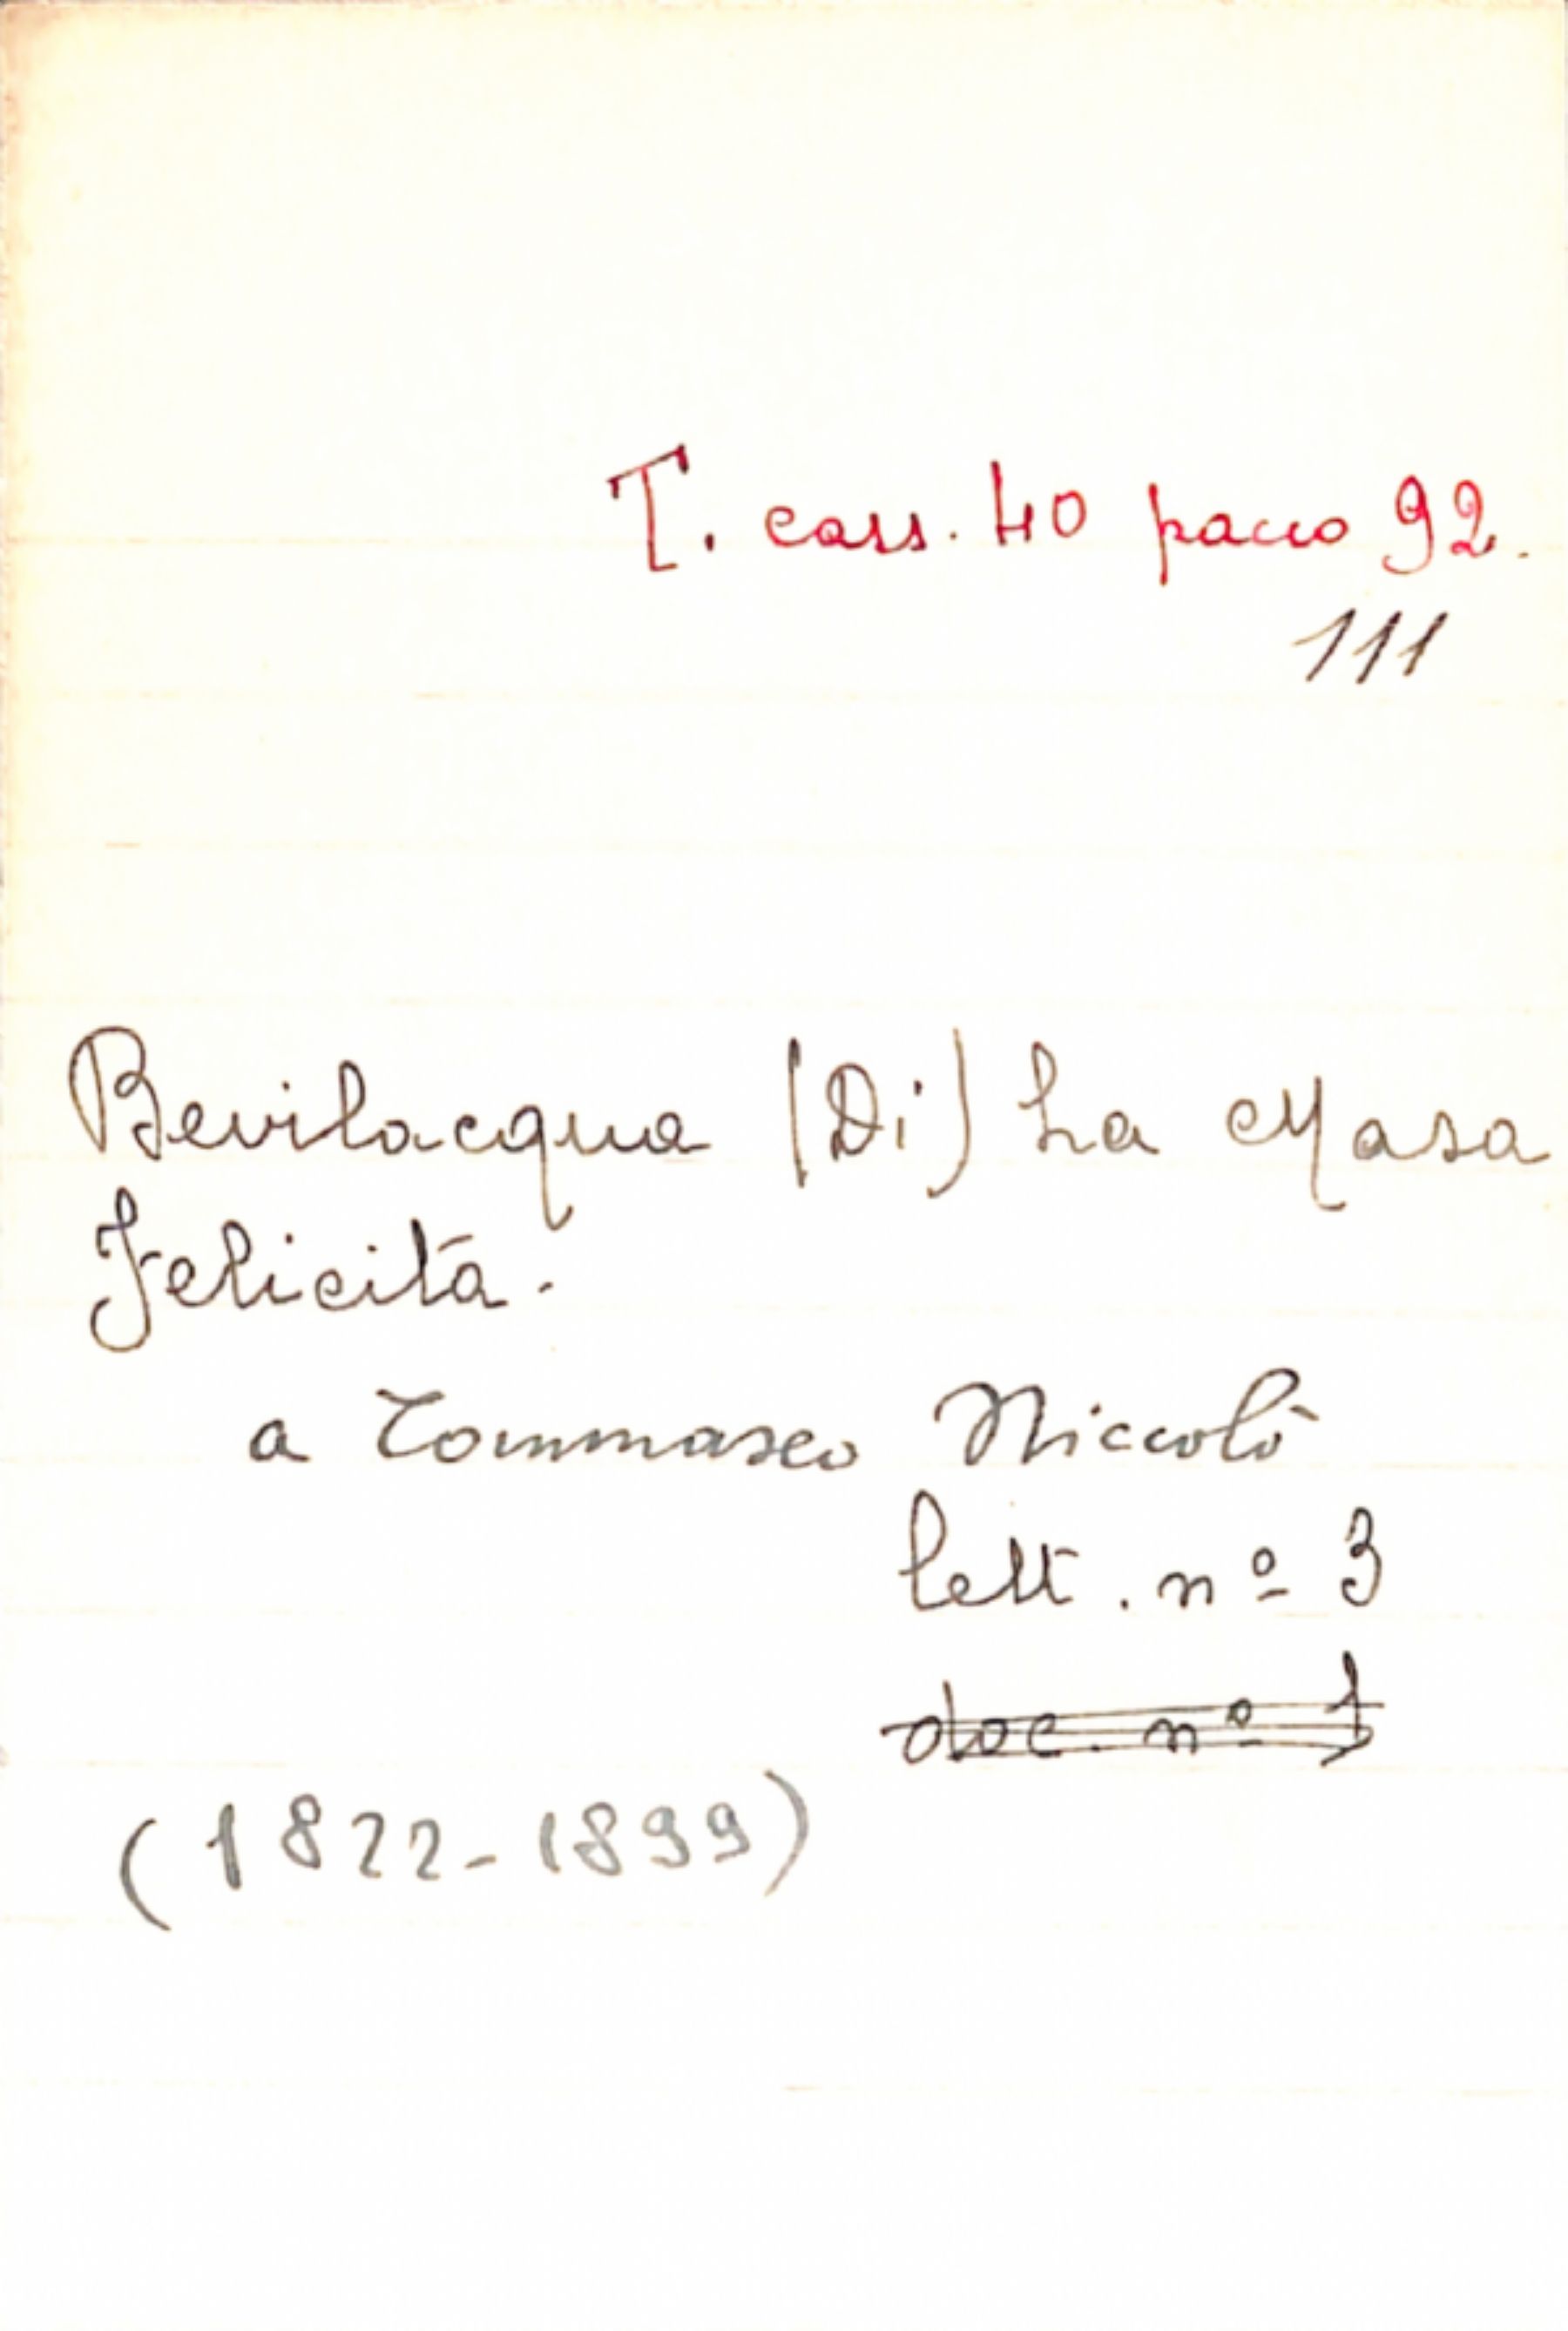 T. cass. 40 pacco 92.
111
Bevilacqua (Di) La Masa
Felicità.
a Tommaseo Niccolò
lett. nº 3
doc. nº 1
(1822-1899)